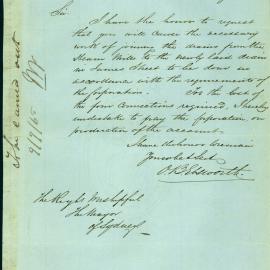 Sir
I have the honor to request
that you will cause the necessary
work of joining the drains from the
Steam Mills to the newly laid drain
in James Street to be done in
accordance with the requirements of
the Corporation. For the cost of
the four connections required, I hereby
undertake to pay the Corporation on
production of the account.
I have the honor to remain
Your obedt Servt
O. B. Ebsworth
The Right Worshipful
The Mayor
of Sydney
To be carried out
9/9/65